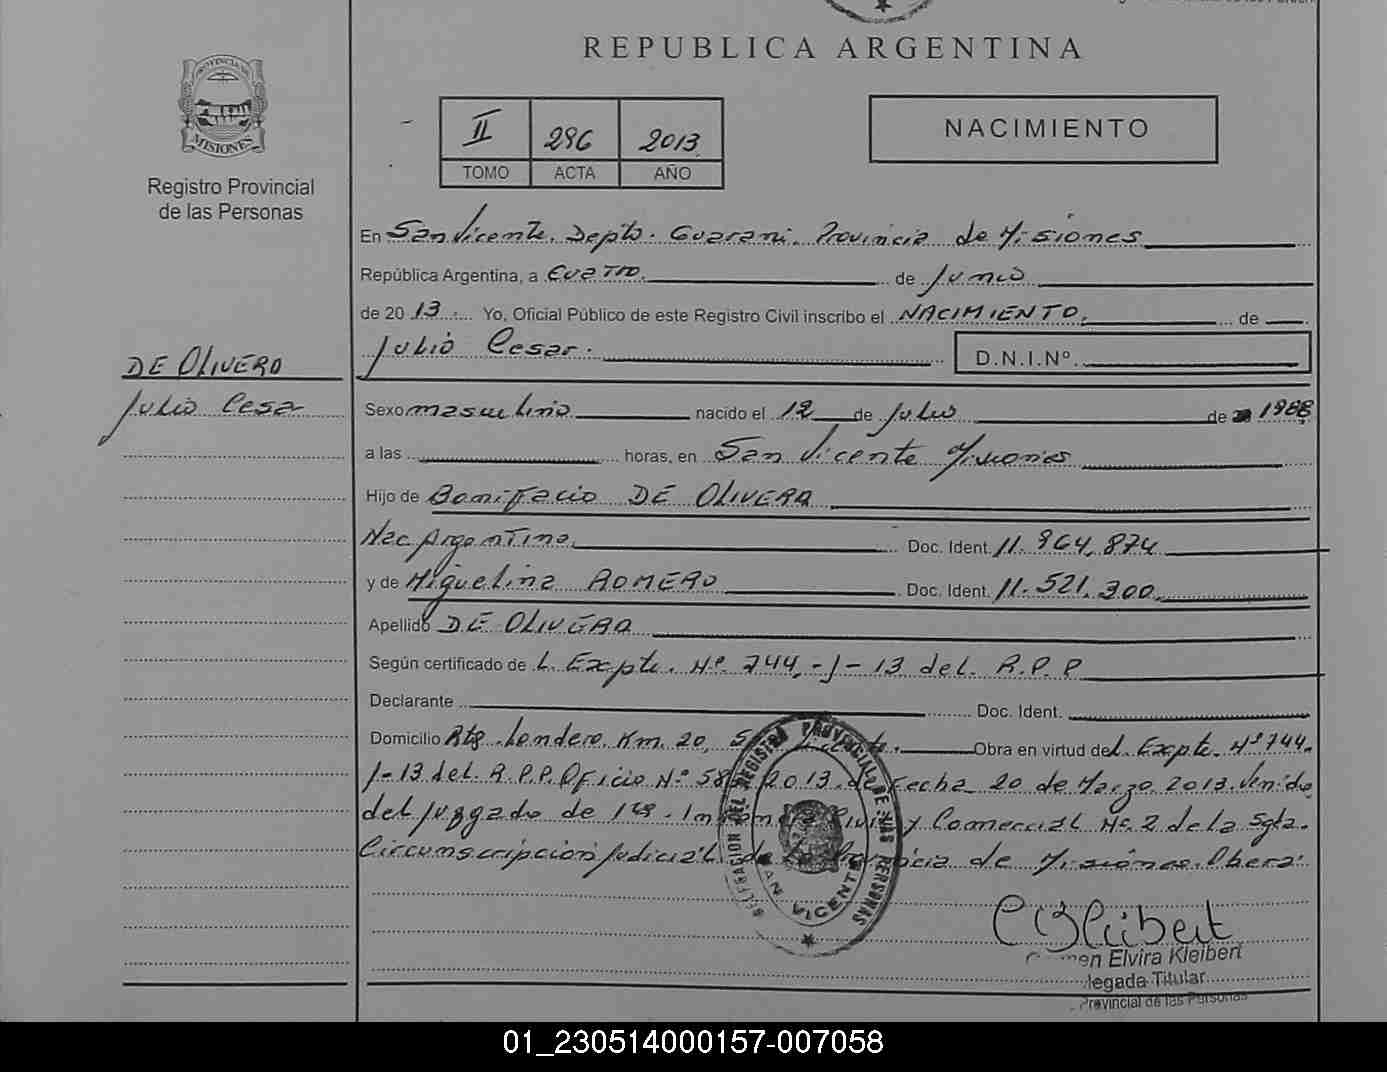 REPUBLICA ARGENTINA
PROVINCIA DE
MISIONES
Registro Provincial
de las Personas
II 296 2013
TOMO ACTA AÑO
NACIMIENTO
En San Vicente, Depto. Guarani, Provincia de Misiones
República Argentina, a Cuatro de Junio
de 20 13. Yo, Oficial Público de este Registro Civil inscribo el NACIMIENTO, de
Julio Cesar. D.N.I.Nº.
DE OLIVERO
Julio Cesa
Sexo masculino nacido el 12 de Julio de 1988
a las horas, en San Vicente Misiones
Hijo de Bonifacio DE OLIVERA
Nac Argentina, Doc. Ident. 11.964.874
y de Miguelina ROMERO Doc. Ident. 11.521.300
Apellido DE OLIVERA
Según certificado de L. Expte. Nº 744,-J-13 del. R.P.P
Declarante Doc. Ident.
Domicilio Rta. Londero Km. 20, Obra en virtud de L. Expte. Nº 744.
J-13 del. R.P.P. Oficio Nº 58 2013. de Fecha 20 de Marzo 2013. Venido
del Juzgado de 1ra. Civil y Comercial Nº 2 de la Sgda.
Circunscripcion Judicial, de la Provincia de Misiones. Obera.
DELEGACION DEL REGISTRO PROVINCIAL DE LAS PERSONAS
SAN VICENTE
Elvira Kleibert
legada Titular
Provincial de las Personas
01_230514000157-007058